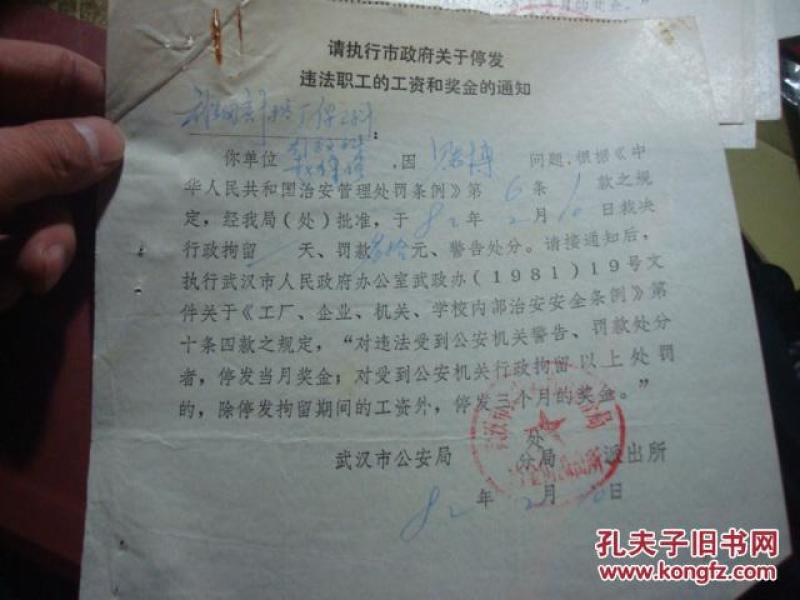 请执行市政府关于停发
违法职工的工资和奖金的通知
:
你单位 ,因 赌博 问题,根据《中
华人民共和国治安管理处罚条例》第 6 条 1 款之规
定,经我局(处)批准,于 82 年 2 月 10 日裁决
行政拘留 天、罚款叁拾元、警告处分。请接通知后,
执行武汉市人民政府办公室武政办(1981)19号文
件关于《工厂、企业、机关、学校内部治安安全条例》第
十条四款之规定,“对违法受到公安机关警告、罚款处分
者,停发当月奖金;对受到公安机关行政拘留以上处罚
的,除停发拘留期间的工资外,停发三个月的奖金。”
处
武汉市公安局 分局 派出所
82 年 2 月 10 日
孔夫子旧书网
www.kongfz.com